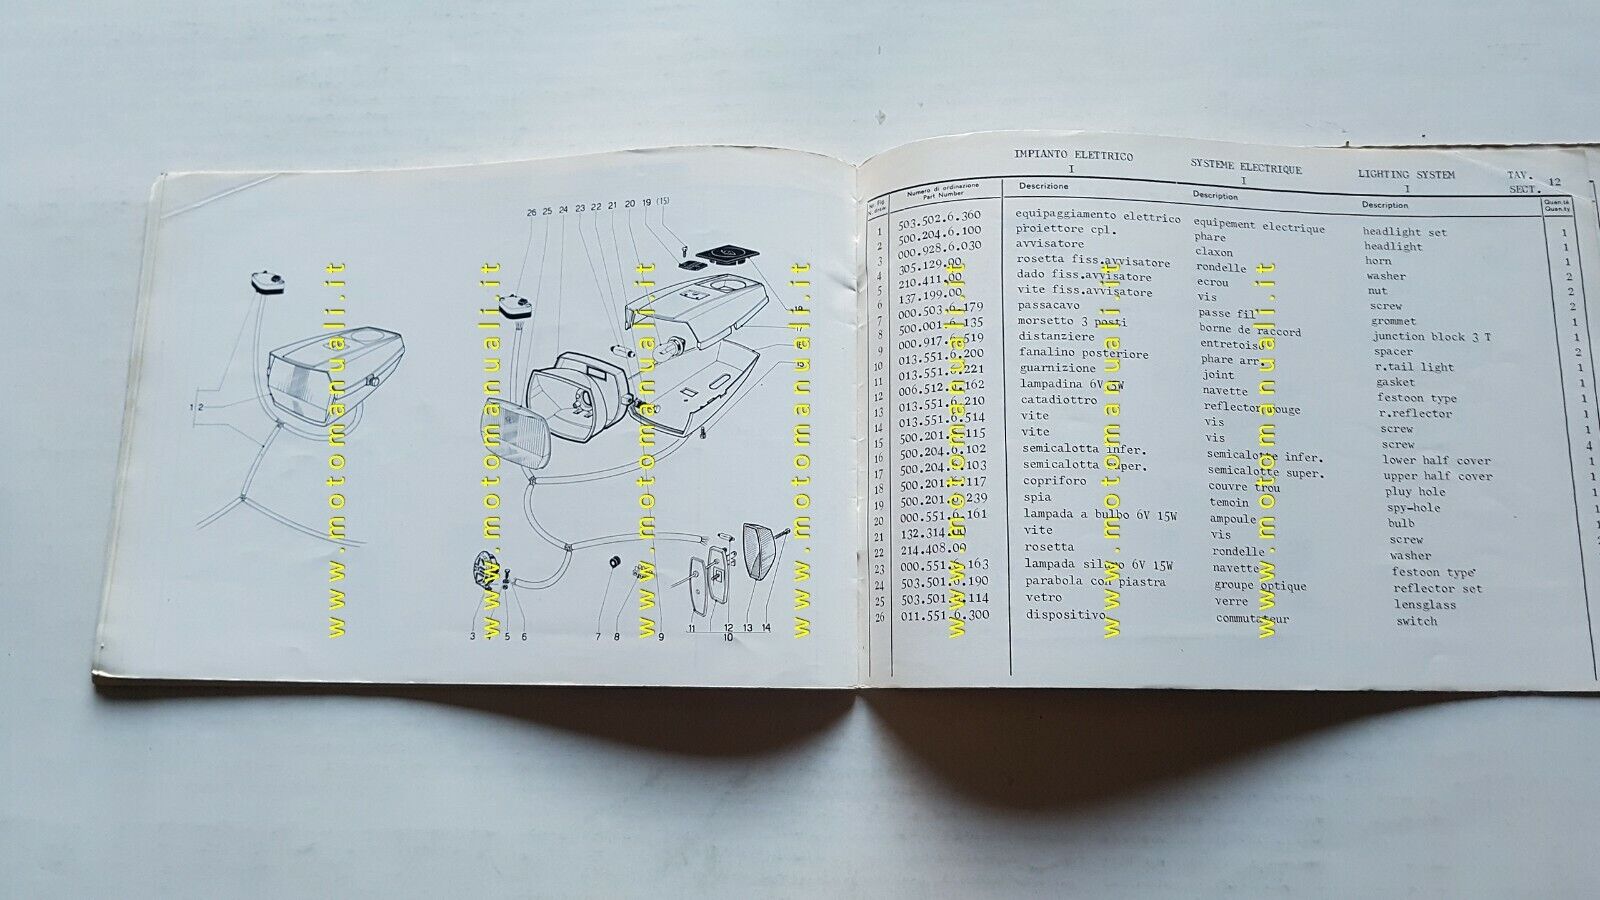 26 25 24 23 22 21 20 19 (15)
18
1 2
3 4 5 6
7 8 9
11 12 13 14
10
www.motomanuali.it
www.motomanuali.it
www.motomanuali.it
www.motomanuali.it
www.motomanuali.it
www.motomanuali.it
www.motomanuali.it
IMPIANTO ELETTRICO SYSTEME ELECTRIQUE LIGHTING SYSTEM TAV.
I I I SECT. 12
Numero di ordinazione Descrizione Description Description Quan.té
Part Number Quan.ty
1 503.502.6.360 equipaggiamento elettrico equipement electrique headlight set 1
2 500.204.6.100 proiettore cpl. phare headlight 1
3 000.928.6.030 avvisatore claxon horn 1
4 305.129.00 rosetta fiss.avvisatore rondelle washer 2
5 210.411.00 dado fiss.avvisatore ecrou nut 2
6 137.199.00 vite fiss.avvisatore vis screw 2
7 000.503.6.179 passacavo passe fil grommet 1
8 500.001.6.135 morsetto 3 posti borne de raccord junction block 3 T 1
9 000.917.6.519 distanziere entretoise spacer 2
10 013.551.6.200 fanalino posteriore phare arr. r.tail light 1
11 013.551.6.221 guarnizione joint gasket 1
12 006.512.6.162 lampadina 6V 5W navette festoon type 1
13 013.551.6.210 catadiottro reflector rouge r.reflector 1
14 013.551.6.514 vite vis screw 1
15 500.201.6.115 vite vis screw 4
16 500.204.6.102 semicalotta infer. semicalotte infer. lower half cover 1
17 500.204.6.103 semicalotta super. semicalotte super. upper half cover 1
18 500.201.6.117 copriforo couvre trou pluy hole 1
19 500.201.6.239 spia temoin spy-hole
20 000.551.6.161 lampada a bulbo 6V 15W ampoule bulb
21 132.314.00 vite vis screw
22 214.408.00 rosetta rondelle washer
23 000.551.6.163 lampada siluro 6V 15W navette festoon type
24 503.501.6.190 parabola con piastra groupe optique reflector set
25 503.501.6.114 vetro verre lensglass
26 011.551.6.300 dispositivo commutateur switch